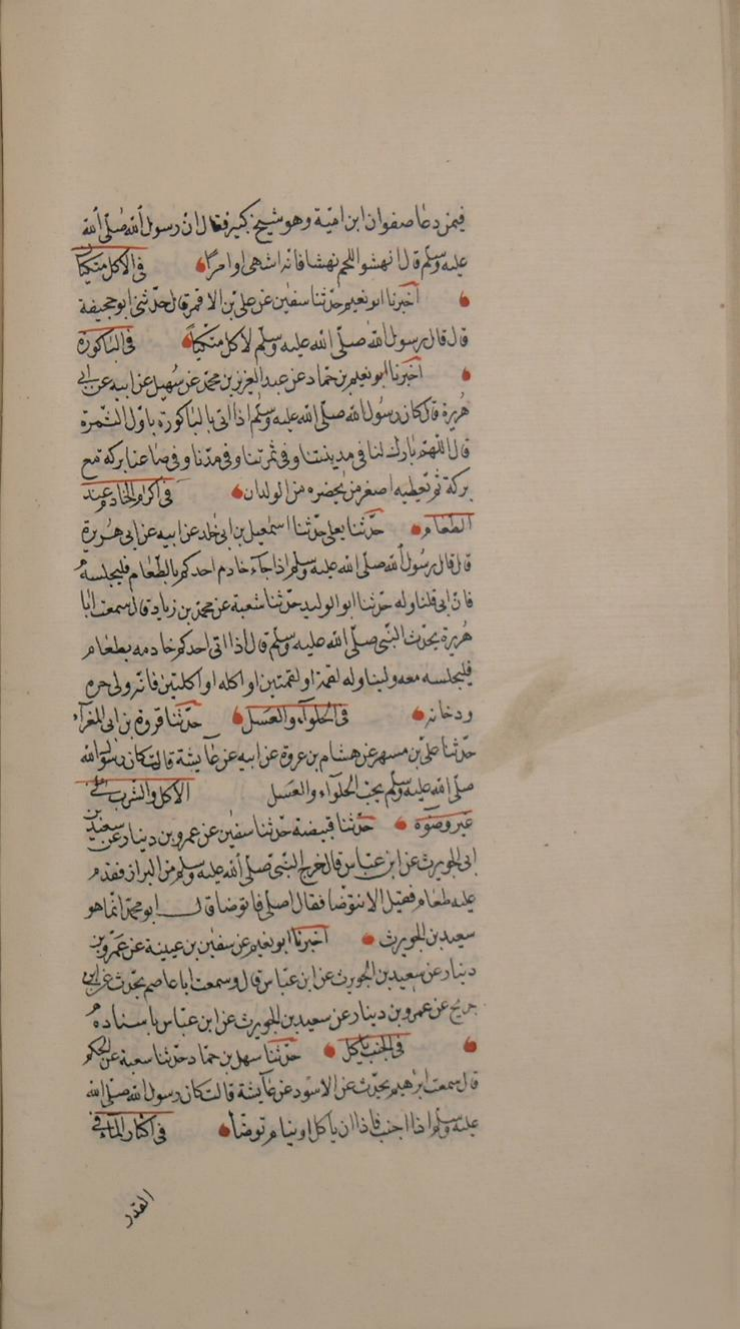 فيمن دعا صفوان ابن امية وهو شيخ كبير فقال ان رسول الله صلى الله
عليه وسلم قال انهشوا اللحم نهشا فانه اشهى او امرا في الاكل متكيا
اخبرنا ابو نعيم حدثنا سفين عن علي بن الاقمر قال حدثني ابو جحيفة
قال قال رسول الله صلى الله عليه وسلم لا اكل متكيا في الباكورة
اخبرنا ابو نعيم بن حماد عن عبد العزيز بن محمد عن سهيل عن ابيه عن ابي
هريرة قال كان رسول الله صلى الله عليه وسلم اذا اتى بالباكورة باول الثمرة
قال اللهم بارك لنا في مدينتنا وفي ثمرتنا وفي مدنا وفي صاعنا بركة مع
بركة ثم تعطيه اصغر من يحضره من الولدان في اكرام الخادم عند
الطعام حدثنا يعلى حدثنا اسمعيل بن ابي خلد عن ابيه عن ابي هريرة
قال قال رسول الله صلى الله عليه وسلم اذا جاء خادم احدكم بالطعام فليجلسه
فان ابى فليناوله حدثنا ابو الوليد حدثنا شعبة عن محمد بن زياد قال سمعت ابا
هريرة يحدث النبي صلى الله عليه وسلم قال اذا اتى احدكم خادمه بطعام
فليجلسه معه وليناوله لقمة او لقمتين او اكله او اكلتين فانه ولي حره
ودخانه في الحلوآء والعسل حدثنا فروة بن ابي المغرآء
حدثنا علي بن مسهر عن هشام بن عروة عن ابيه عن عآيشة قالت كان رسول الله
صلى الله عليه وسلم يحب الحلوآء والعسل الاكل والشرب على
غير وضوء حدثنا قبيصة حدثنا سفين عن عمرو بن دينار عن سعيد بن
ابي الحويرث عن ابن عباس قال خرج النبي صلى الله عليه وسلم من البراز فقدم
عليه طعام فقيل الا تتوضا فقال اصلي فاتوضا قال ابو محمد انما هو
سعيد بن الحويرث اخبرنا ابو نعيم عن سفين بن عيينة عن عمرو بن
دينار عن سعيد بن الحويرث عن ابن عباس قال وسمعت ابا عاصم يحدث عن ابن
جريج عن عمرو بن دينار عن سعيد بن الحويرث عن ابن عباس باسناده
في الجنب ياكل حدثنا سهل بن حماد حدثنا شعبة عن الحكم
قال سمعت ابرهيم يحدث عن الاسود عن عآيشة قالت كان رسول الله صلى الله
عليه وسلم اذا اجنب فاذا ان ياكل او ينام توضا في اكثار المآء في
القدر